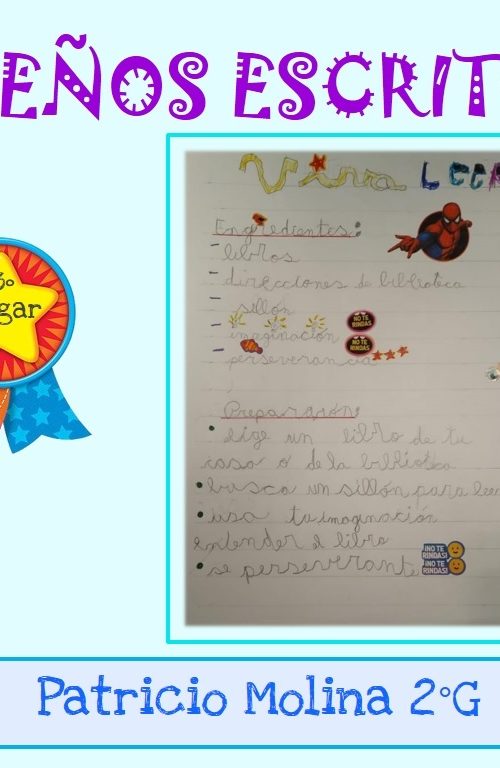 EÑOS ESCRIT
3º
gar
Viva Leer
Engredientes:
- libros
- direcciones de biblioteca
- sillón
- imaginación
- perseverancia
NO TE RINDAS
NO TE RINDAS
Preparación
• Elige un libro de tu
casa o de la biblioteca
• busca un sillón para leer
• usa tu imaginación
entender el libro
• se perseverante
¡NO TE RINDAS!
¡NO TE RINDAS!
Patricio Molina 2°G